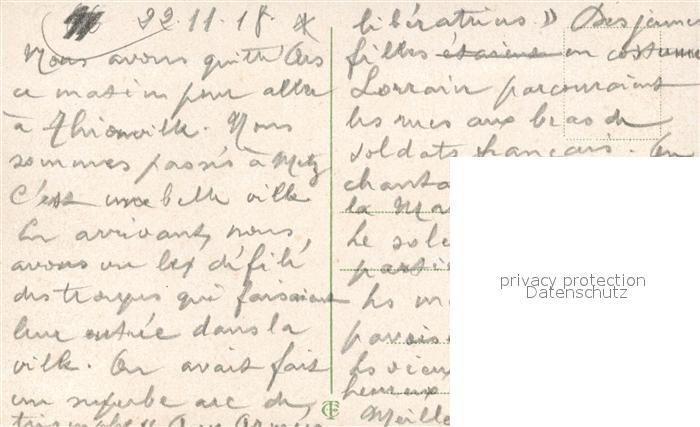 22.11.18
Nous avons quitté Ars
ce matin pour aller
à Thionville. Nous
sommes passés à Metz
C'est une belle ville
En arrivant, nous
avons vu les défilé
des troupes qui faisaient
leur entrée dans la
ville. On avait fait
un superbe arc de
triomphe "Aux Armées
libératrices" Des jeunes
filles étaient en costume
Lorrain parcouraient
les rues aux bras de
soldats français. On
chanta
la Mar
Le sole
partie
Les m
pavois
les vieux
heureux
Meille
privacy protection
Datenschutz